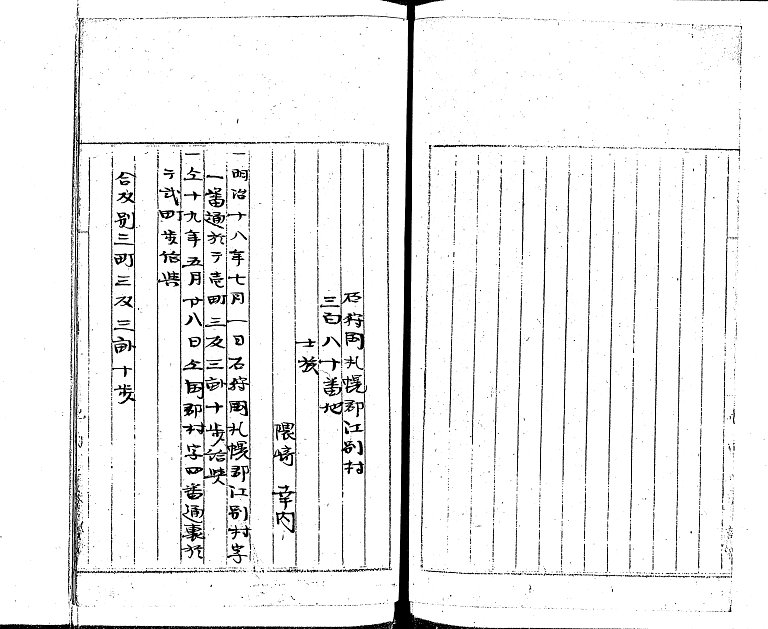 石狩国札幌郡江別村
三百八十番地
士族
隈崎 幸内
一明治十八年七月一日石狩国札幌郡江別村字
一番通於テ壱町三反三畝十歩給与
一仝十九年五月廿八日仝国郡村字四番通裏於
テ弐町歩給与
合反別三町三反三畝十歩